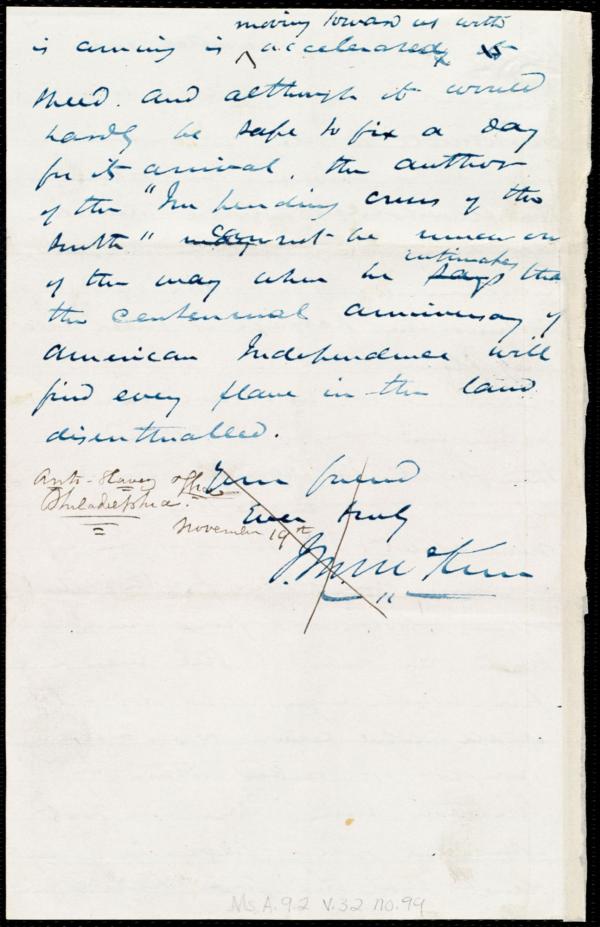 moving toward us with
is coming is ^ accelerated
speed. and although it would
hardly be safe to fix a day
for its arrival, the author
of the "Impending crisis of the
South" cannot be much out
of the way when he intimates that
the centennial anniversary of
American Independence will
find every slave in the land
disenthralled.
Your friend
Ever truly
J. M. McKim
Anti-Slavery office
Philadelphia.
November 19th
Ms. A. 9.2 V. 32 no. 99